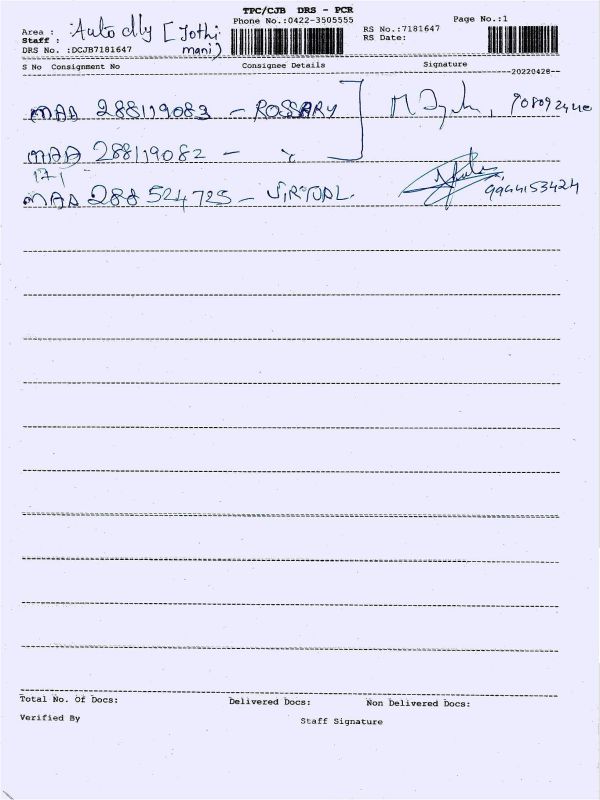 TPC/CJB DRS - PCR
Phone No.:0422-3505555
Page No.:1
Area : Auto dly [Jothi
Staff : mani)
RS No.:7181647
RS Date:
DRS No. :DCJB7181647
S No Consignment No Consignee Details Signature
20220428
MAA 288119083 - ROSSARY
MAA 288119082 - "
MAA 288524725 - VIRTUAL.
9944153424
Total No. Of Docs: Delivered Docs: Non Delivered Docs:
Verified By Staff Signature